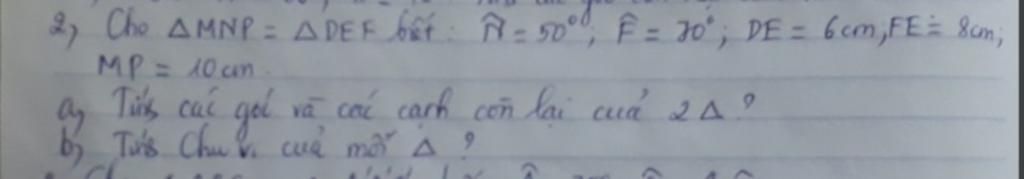 2, Cho ΔMNP = ΔDEF biết: N̂ = 50°; F̂ = 70°; DE = 6cm, FE = 8cm;
MP = 10cm.
a, Tính các góc và các cạnh còn lại của 2 Δ ?
b, Tính Chu vi của mỗi Δ ?